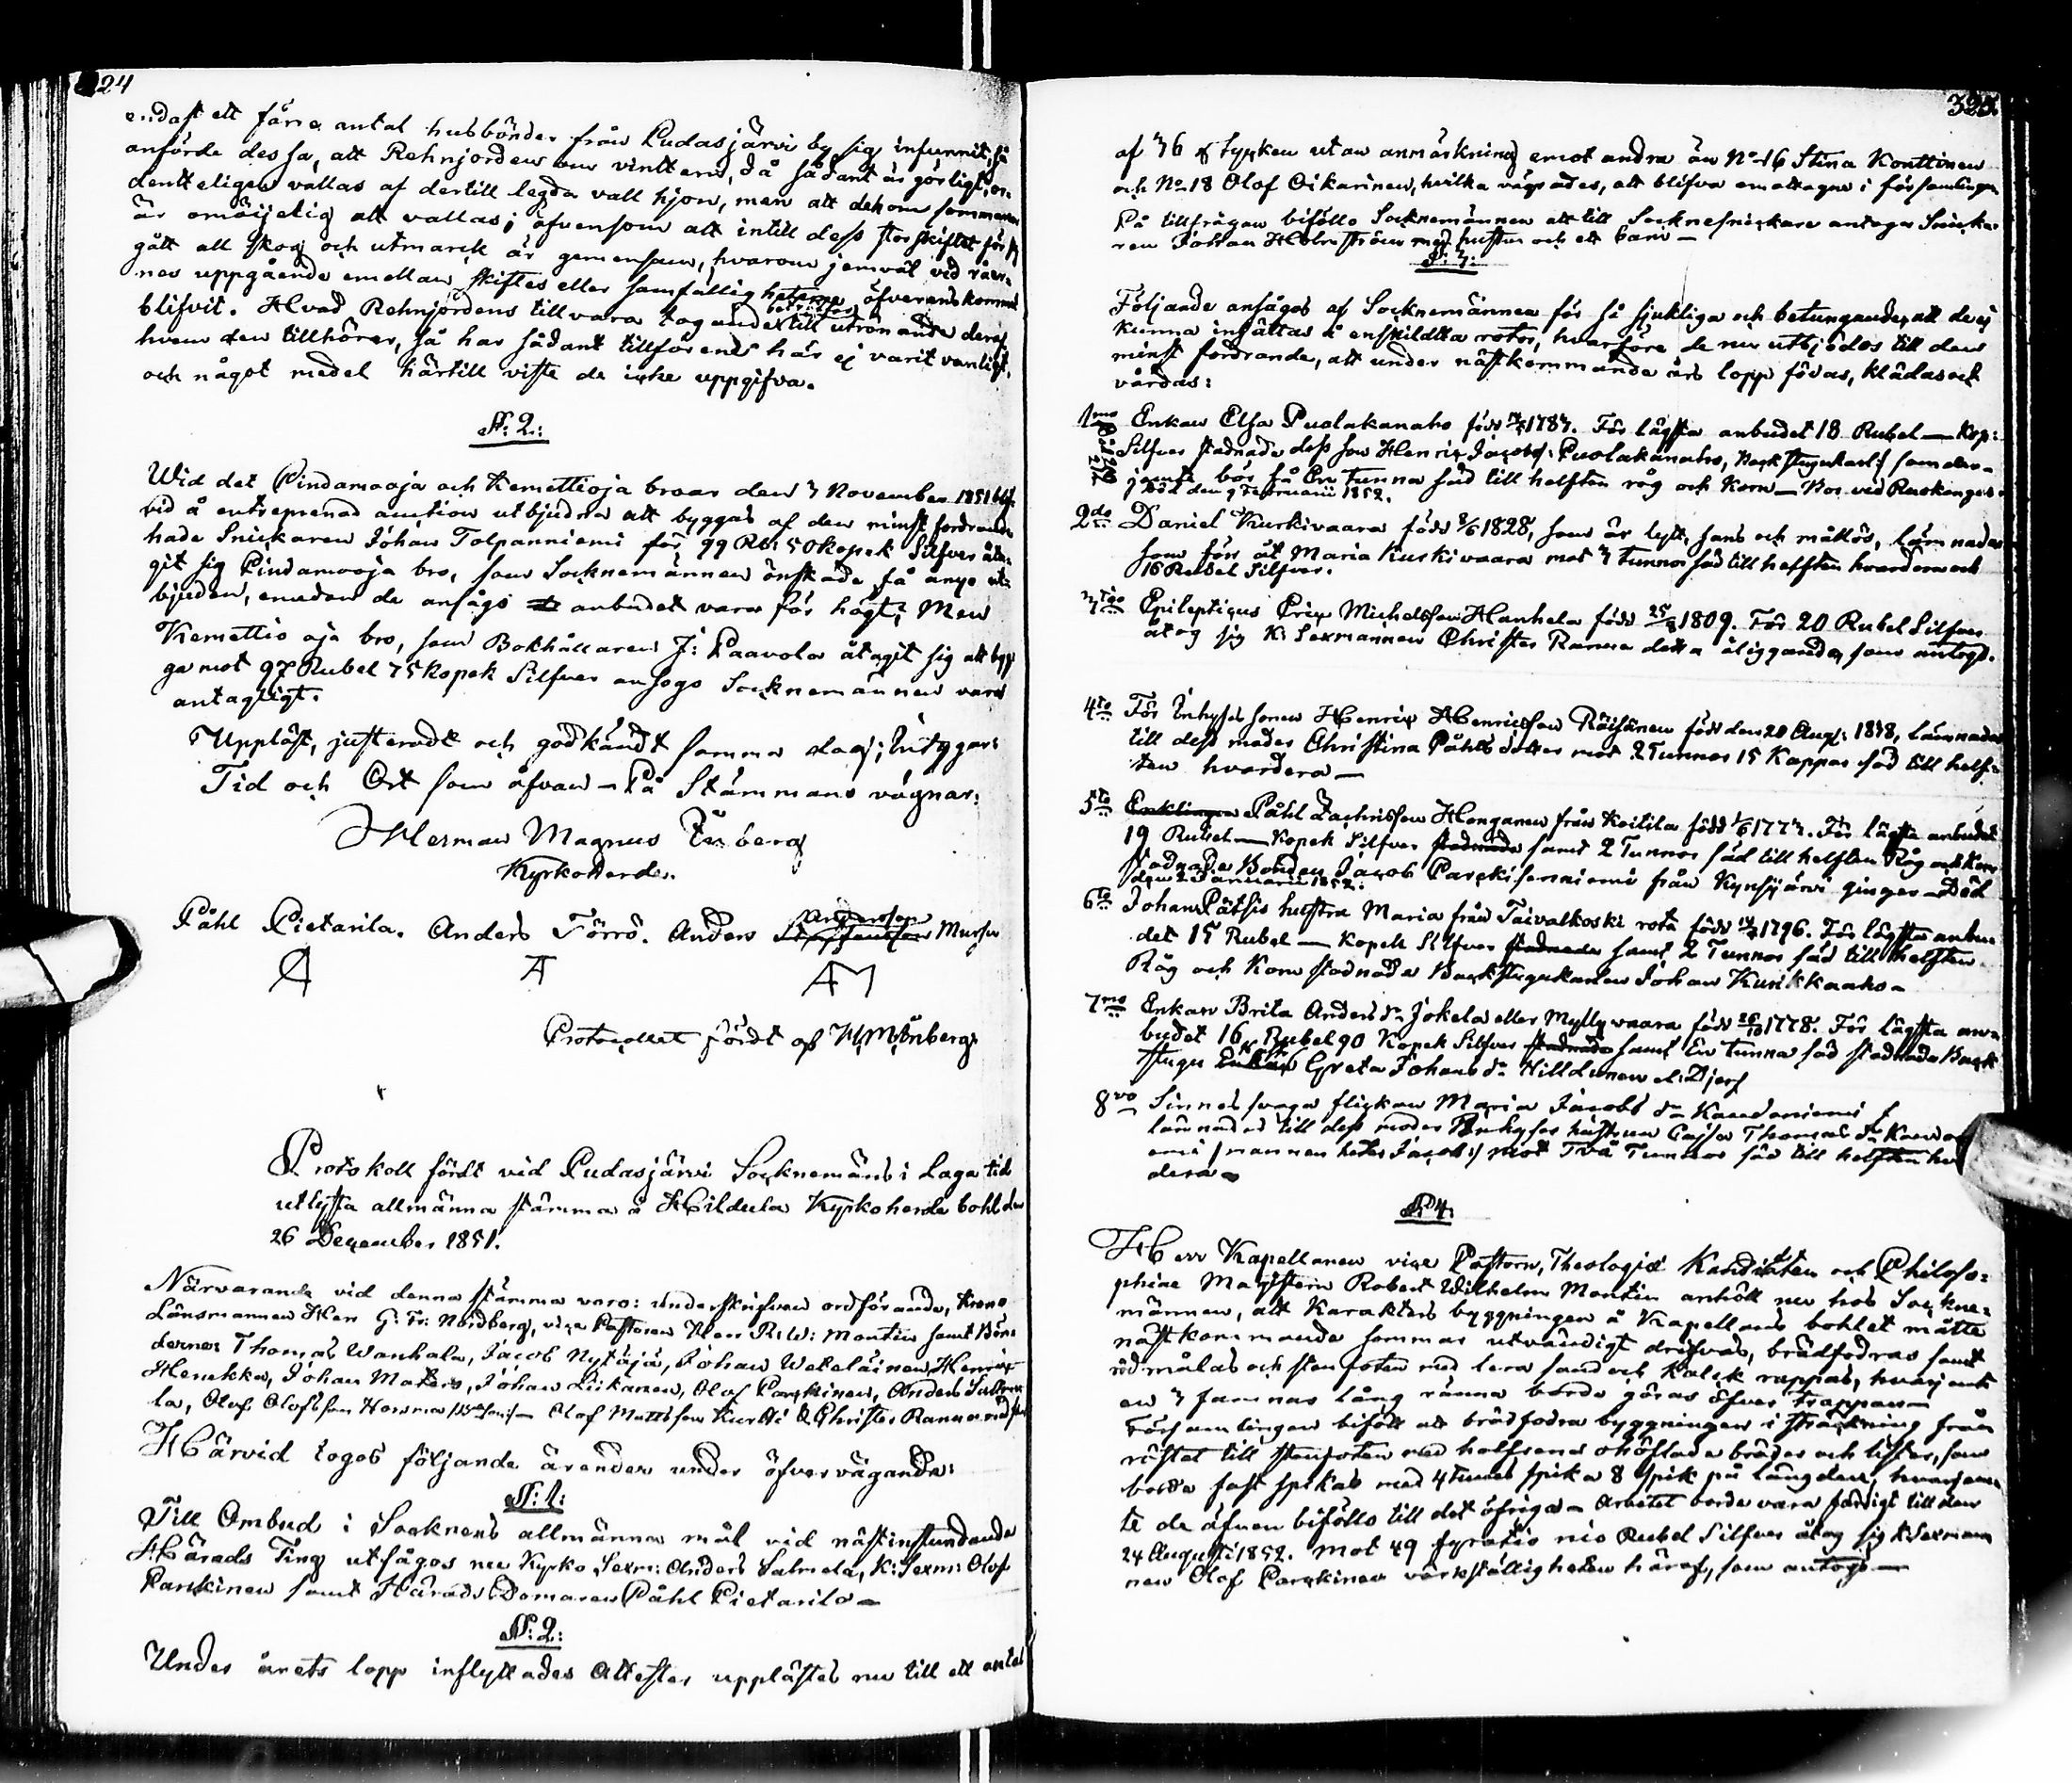 324
endast ett färre antal husbönder från Pudasjärvi by sig infunnit, så
anförde dessa, att Rehnjorden om vinttern, då sådant är görligt, or-
dentteligen vallas af dertill legda vall hjon, men att dehom sommaren
är omöijelig att vallas; öfvensom att intill dess storskiftet för sig
gått all skog och utmarck är gemensam, hvarom jemväl vid råer-
nes uppgående emellan skiftes eller samfällig heterne öfverenskommit
blifvit. Hvad Rehnjordens tillvara tagande beträffar till utrönande deraf
hvem den tillhörer, så har sådant tillförende här ej varit vanligt,
och något medel härtill visste de icke uppgifva.
§: 2.:
Wid det Pindamaoja och Kemettioja broar den 3 November 1851 blif-
vid å entreprenad auction utbjudna att byggas af den minst fordrande
hade Snickaren Johan Tolpanniemi för 99 Rb: 50 kopek Silfver åta-
git sig Pindamaoja bro, som Socknemännen önskade få anyo ut-
bjuden, emedan de ansågo anbudet vara för högt; Men
Kemettio oja bro, som Bokhållaren J: Paavola åtagit sig att byg-
ga mot 97 Rubel 75 kopek Silfver ansågo Socknemännen vara
antagligt.
Uppläst, justeradt och godkändt samma dag; betygar:
Tid och Ort som ofvan - På Stämmans vägnar:
Herman Magnus Enberg
Kyrkoherde.
Påhl Pietarila. Anders Törrö. Anders Andersson Mursu
PA AT AM
Protocollet fördt af H M Enberg
Protokoll fördt vid Pudasjärvi Socknemäns i Laga tid
utlysta allmänna stämma å Hildula Kyrkoherde bohl den
26 December 1851.
Närvarande vid denna stämma voro: underskrifven ordförande, Krono
Länsmannen Herr G: Fr: Nordberg, vice Pastoren Herr R: W: Montin samt Bön-
derne: Thomas Wanhala, Jacob Nytäjä, Johan Weteläinen, Henric
Henukka, Johan Matero, Johan Liikanen, Olof Parckinen, Anders Salme-
la, Olof Olofsson Horsma, Olof Mattsson Kurtti & Christer Ranua
Härvid togos följande ärenden under öfvervägande:
§: 1.:
Till Ombud i Socknens allmänna mål vid nästinstundande
Härads Ting utsågos nu Kyrko Sexm: Anders Salmela, K: Sexm: Olof
Parckinen samt HäradsDomaren Påhl Pietarila -
§: 2.:
Under årets lopp inflyttades Attester upplästes nu till ett antal
325.
af 36 stycken utan anmärkning emot andra än No 16 Stina Konttinen
och No 18 Olof Oikarinen, hvilka vägrades, att blifva emottagne i församlingen
På tillfrågan biföllo Socknemännen att till Socknesnickare antaga Snicka-
ren Johan Holmström med hustru och ett barn -
§: 3.:
Följande ansågos af Socknemännen för så sjukliga och betungande, att de ej
kunna insättas å enskildta rotor, hvarföre de nu utbjödos till den
minst fordrande, att under nästkommande års lopp födas, klädas och
vårdas:
1mo Enkan Elsa Puolakanaho född 1787. För lägsta anbudet 18 Rubel - Kop:
Silfver stadnade dess son Henric Jacobss: Puolakanaho, Backstugukarl som der-
jemte bör få En tunna säd till helften råg och korn - Bor vid Ruskangas
Död den 9 Februarii 1852.
2do Daniel Kurkivaara född 8/6 1828, som är lytt, sans och mållös, lämnades
som förr åt Maria Kurkivaara mot 3 tunnor säd till helften hvardera och
16 Rubel Silfver.
3tio Epilepticus Eric Michelsson Hanhela född 1809. För 20 Rubel Silfver
åtog sig K: Sexmannen Christer Ranua detta åliggande, som antogs.
4to För Inhyses sonen Henric Henricsson Räisänen född den 20 Aug: 1848, lämnades
till dess moder Christina Påhls dotter mot 2 Tunnor 15 Kappar säd till helf-
ten hvardera -
5to Enklingen Påhl Zachrisson Honganen från Koitila född 1/6 1773. För lägsta anbudet
19 Rubel - Kopek Silfver stadnade samt 2 Tunnor säd till helften Råg och Korn
stadnade Bonden Jacob Parckisenniemi från Kynsijärvi - Död
den 2 Januarii 1852.
6to Johan Pätsis hustru Maria från Taivalkoski rota född 1796. För lägsta anbu-
det 15 Rubel - Kopek Silfver stadnade samt 2 Tunnor säd till helften
Råg och Korn stadnade Backstugukarlen Johan Kurikkaaho -
7mo Enkan Brita Anders dr Jokela eller Myllyvaara född 1778. För lägsta an-
budet 16 Rubel 90 Kopek Silfver stadnade samt En tunna säd stadnade Back-
stugu Enkan Greta Johans dr Hilldunen
8vo Sinnes svaga flickan Maria Jacobs dr Kaudaniemi
lämnades till dess moder Inhyses hustrun Caisa Thomas dr
emi / mannen heter Jacob / mot Två Tunnor säd till helften
dera -
§: 4.:
Herr Kapellanen vice Pastorn, Theologiæ Kandidaten och Philoso-
phiae Magistern Robert Wilhelm Montin anhöll nu hos Sockne-
männen, att Karakters byggningen å Kapellans bohlet måtte
nästkommande sommar utvändigt drifvas, brädfodras samt
rödmålas och stenfoten med lera sand och Kalck rappas, hvarjemte
en 3 famnar lång ränna borde göras öfver trappan -
Församlingen biföll att brädfodra byggningen i sträckning från
röstet till stenfoten med helfrena ohöflade bräder och lister, som
borde fast spikas med 4 tums spik a 8 spik på längden, hvarjem-
te de äfven biföllo till det öfriga - Arbetet borde vara färdigt till den
24 Augusti 1852. Mot 49 fyratio nio Rubel Silfver åtog sig K: Sexman-
nen Olof Parckinen värkställigheten häraf, som antogs -